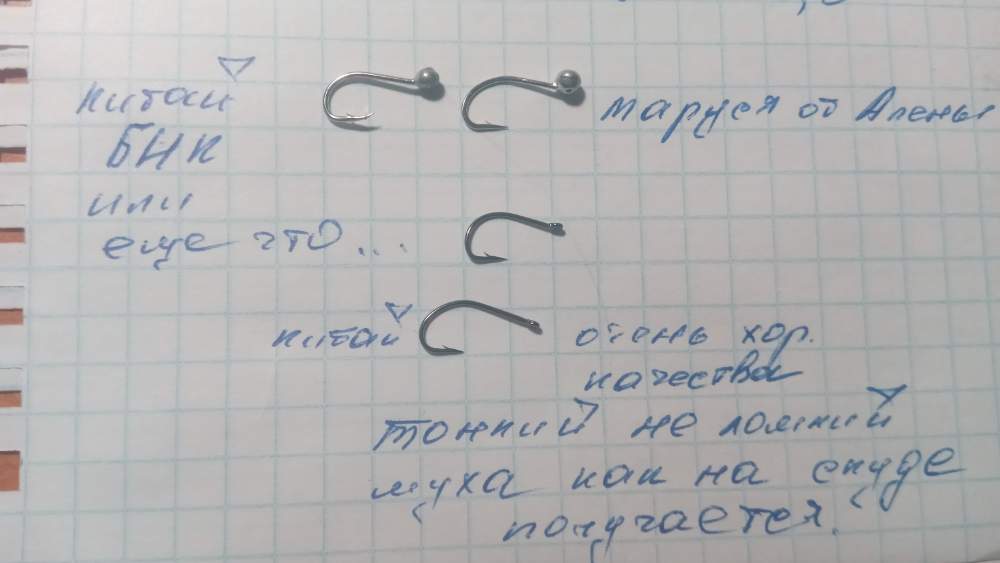 китай
БНК
или
еще что...
маруся от Алены
китай
очень хор.
качества
тонкий не ломкий
муха как на скуде
получается.